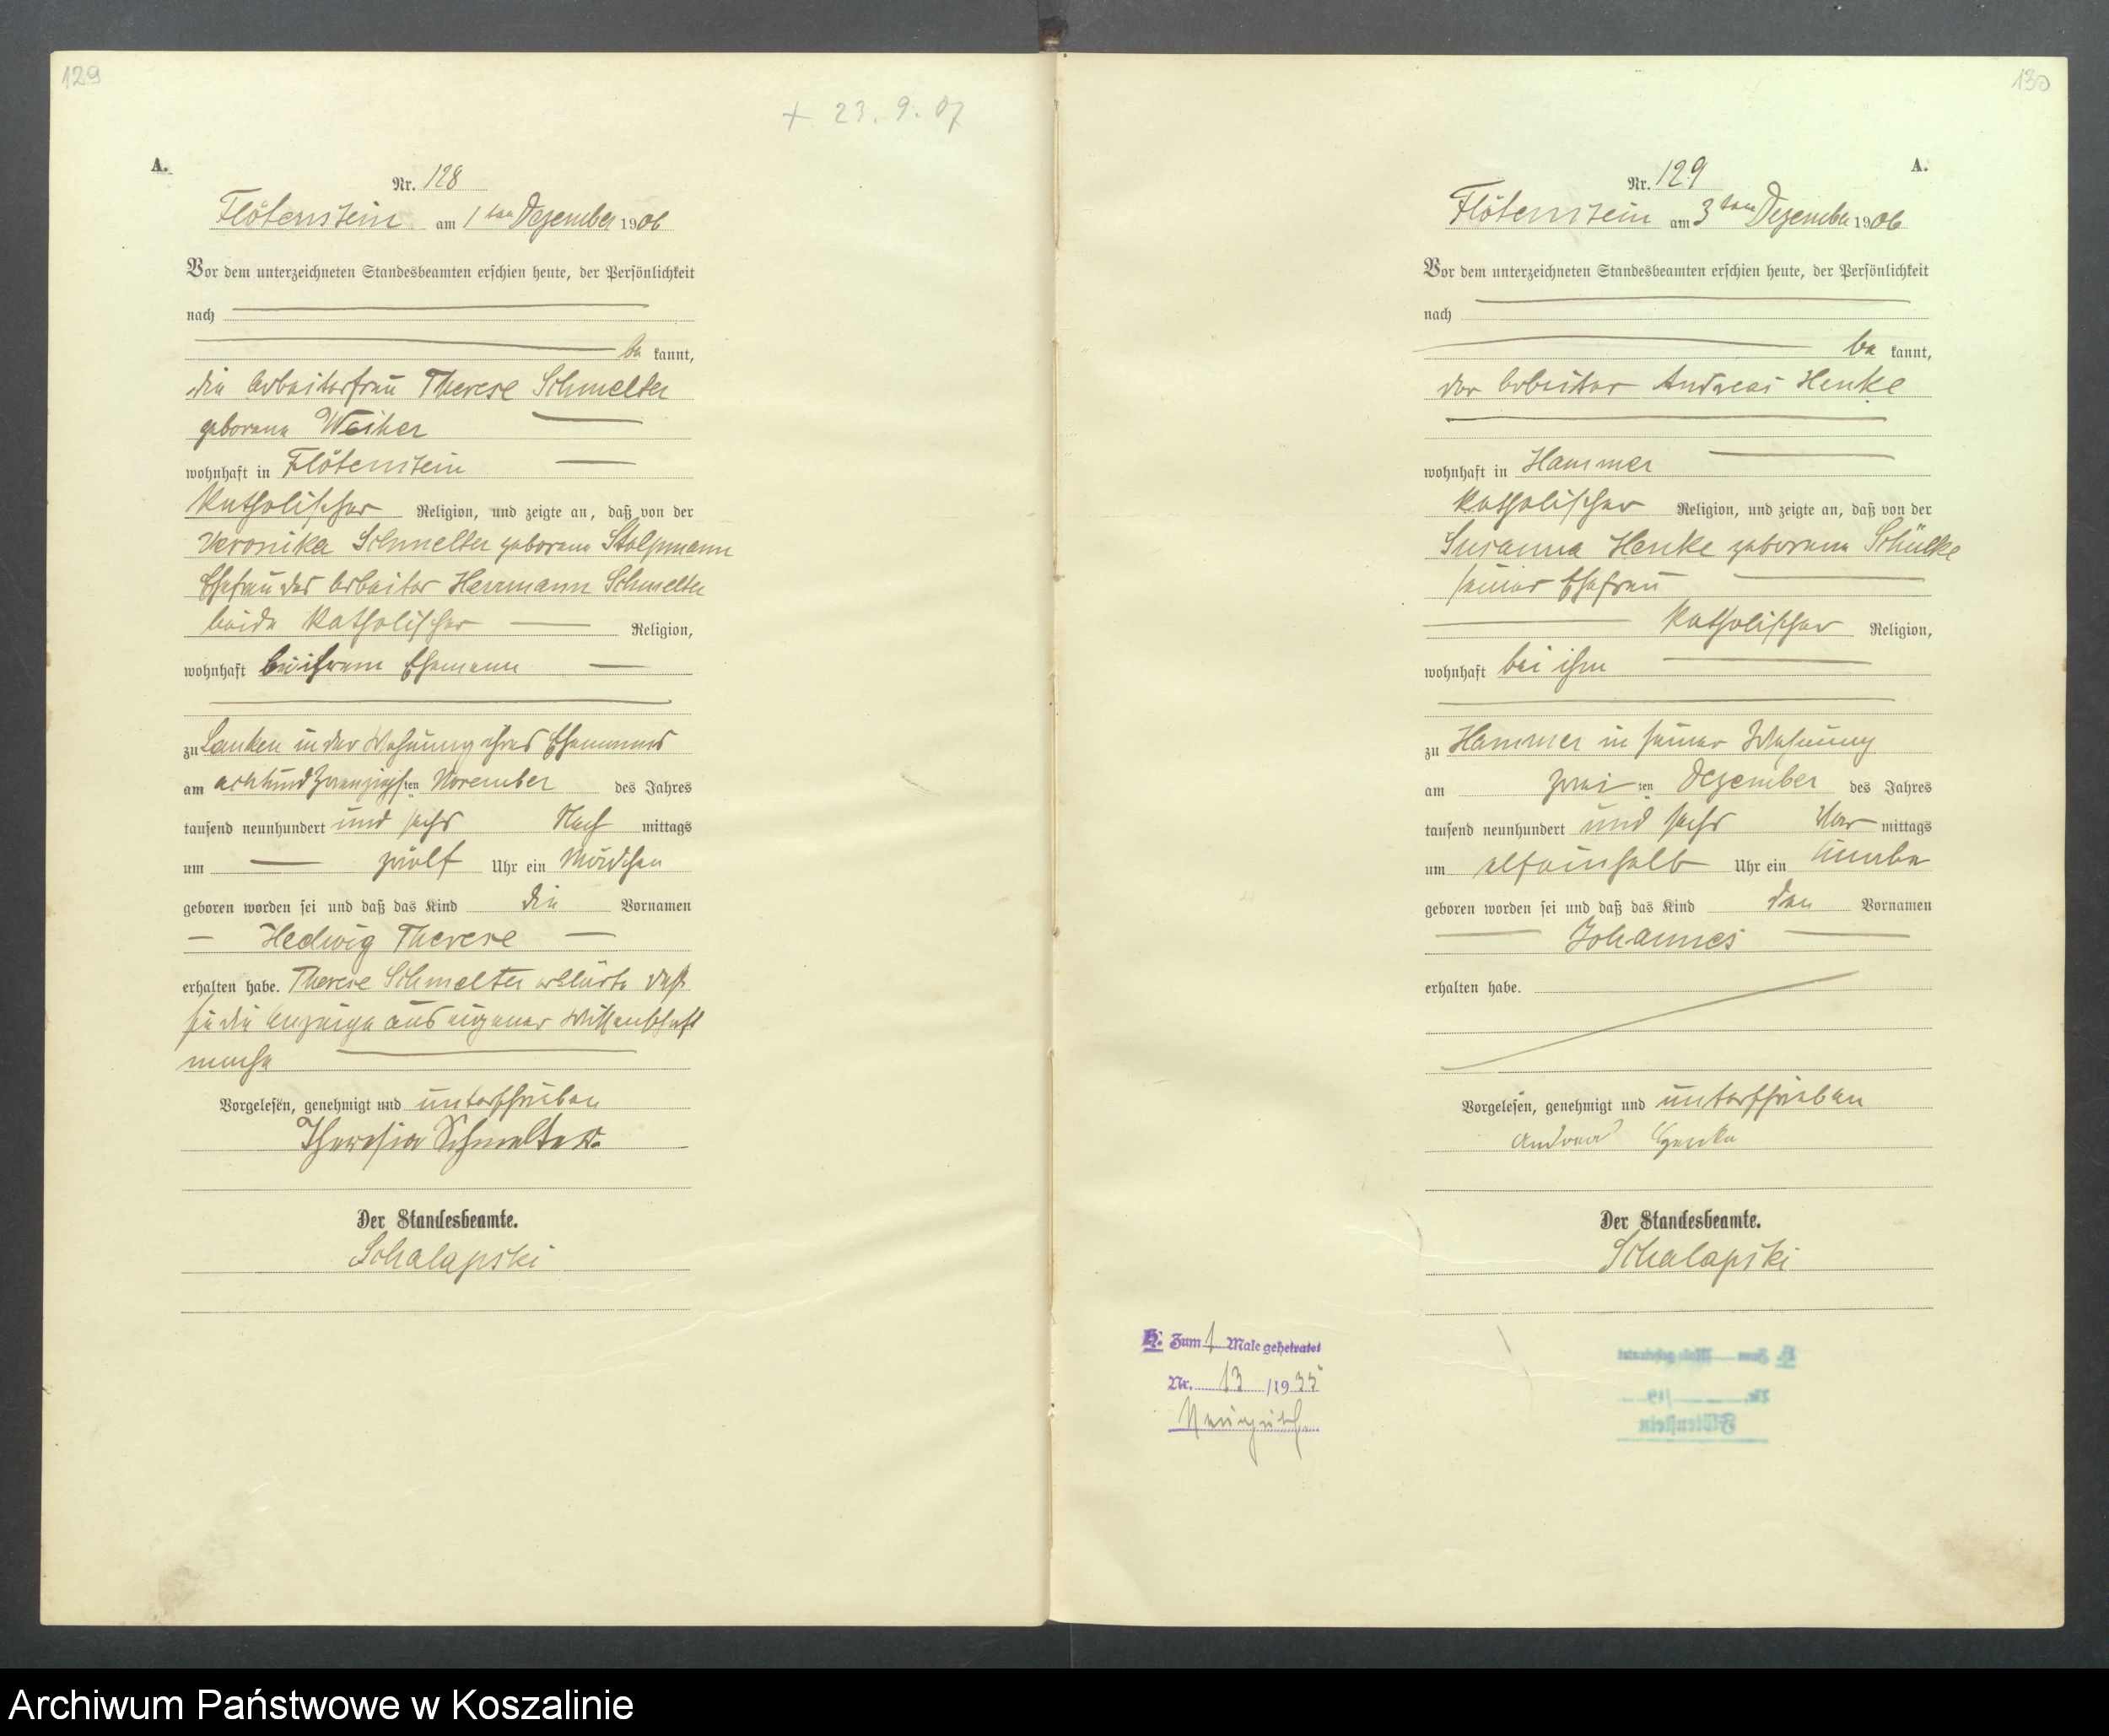 129
+ 23. 9. 07
A.
Nr. 128
Flötenstein am 1ten Dezember 1906
Vor dem unterzeichneten Standesbeamten erschien heute, der Persönlichkeit
nach
be kannt,
die Arbeiterfrau Therese Schmelter
geborene Weiher
wohnhaft in Flötenstein
katholischer Religion, und zeigte an, daß von der
Veronika Schmelter geborene Stolpmann
Ehefrau des Arbeiter Herrmann Schmelter
beide katholischer Religion,
wohnhaft bei ihrem Ehemann
zu Lanken in der Wohnung ihres Ehemanns
am achtundzwanzigsten November des Jahres
tausend neunhundert und sechs Nach mittags
um zwölf Uhr ein Mädchen
geboren worden sei und daß das Kind die Vornamen
Hedwig Therese
erhalten habe. Therese Schmelter erklärte daß
sie die Anzeige aus eigener Wissenschaft
mache
Vorgelesen, genehmigt und unterschrieben
Theresia Schmelter.
Der Standesbeamte.
Schalapski
130
A.
Nr. 129
Flötenstein am 3ten Dezember 1906
Vor dem unterzeichneten Standesbeamten erschien heute, der Persönlichkeit
nach
be kannt,
der Arbeiter Andreas Henke
wohnhaft in Hammer
katholischer Religion, und zeigte an, daß von der
Susanna Henke geborene Schülke
seiner Ehefrau
katholischer Religion,
wohnhaft bei ihm
zu Hammer in seiner Wohnung
am zwei ten Dezember des Jahres
tausend neunhundert und sechs Vor mittags
um elfeinhalb Uhr ein Knabe
geboren worden sei und daß das Kind den Vornamen
Johannes
erhalten habe.
Vorgelesen, genehmigt und unterschrieben
Andreas Henke
Der Standesbeamte.
Schalapski
H. Zum 1 Male geheiratet
Nr. 13 /1935
H. Zum Male geheiratet
Nr. /19
Flötenstein
Archiwum Państwowe w Koszalinie